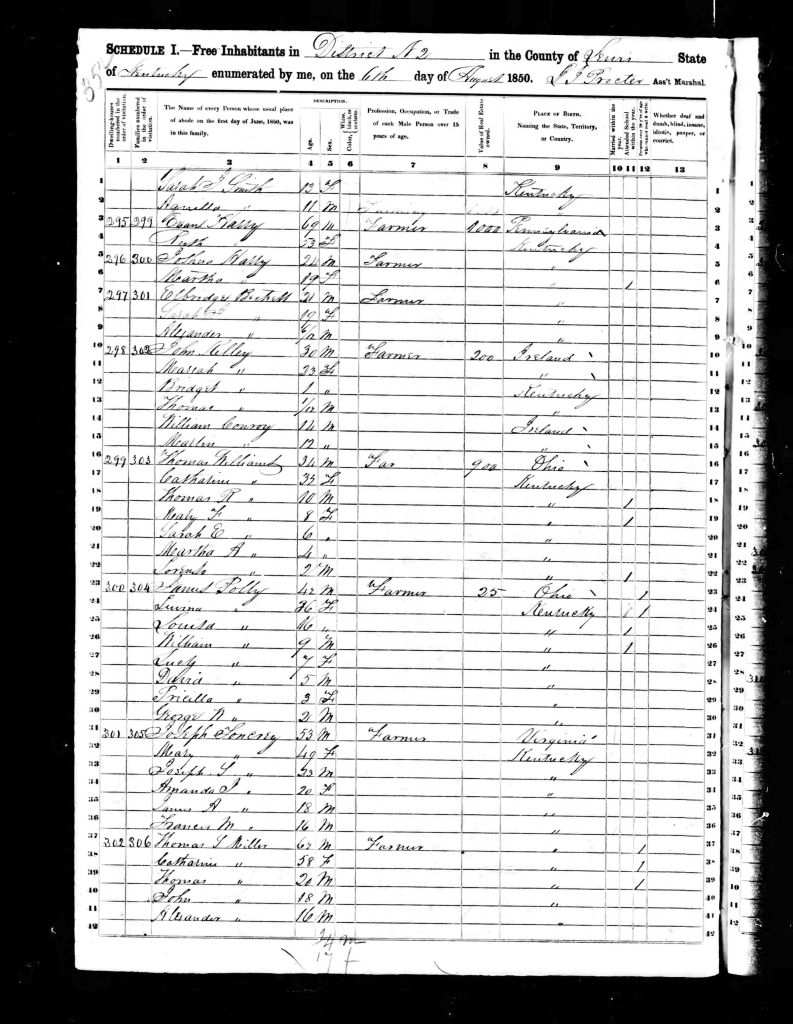 SCHEDULE I.—Free Inhabitants in District N 2 in the County of Lewis State
of Kentucky enumerated by me, on the 6th day of August 1850. Ass't Marshal.
Dwelling-houses numbered in the order of visitation.
Families numbered in the order of visitation.
The Name of every Person whose usual place of abode on the first day of June, 1850, was in this family.
DESCRIPTION.
Age.
Sex.
Color, White, black, or mulatto.
Profession, Occupation, or Trade of each Male Person over 15 years of age.
Value of Real Estate owned.
PLACE OF BIRTH. Naming the State, Territory, or Country.
Married within the year.
Attended School within the year.
Persons over 20 y'rs of age who cannot read & write.
Whether deaf and dumb, blind, insane, idiotic, pauper, or convict.
1 2 3 4 5 6 7 8 9 10 11 12 13
1 Sarah J Smith 13 F Kentucky 1
2 " 11 M 2
3 295 299 69 M Farmer 1000 Pennsylvania 3
4 Ruth " 53 F Kentucky 4
5 296 300 24 M Farmer " 5
6 Meartha " 19 F " 1 6
7 297 301 21 M Farmer " 7
8 " 19 F " 8
9 Alexander " 6/12 M " 9
10 298 302 John Kelley 30 M Farmer 200 Ireland 10
11 Meariah " 23 F " 11
12 Bridget " 1 " Kentucky 12
13 Thomas " 1/12 M " 13
14 William Conroy 14 M Ireland 14
15 Martin " 12 " " 15
16 299 303 Thomas Williams 34 M Far 900 Ohio 16
17 Catharine " F Kentucky 17
18 Thomas R " 10 M " 1 18
19 Meary F " 8 F " 1 19
20 Sarah E " 6 " " 20
21 Meartha A " 4 " " 21
22 Lorenzo " 2 M " 1 22
23 300 304 James Polly 42 M Farmer 25 Ohio 1 23
24 " 36 F Kentucky 1 1 24
25 Louisa " 16 " " 1 25
26 William " 9 M " 1 26
27 Lucy " 7 F " 27
28 David " 5 M " 28
29 Pricilla " 3 F " 29
30 George W " 2 M " 30
31 301 305 Joseph 53 M Farmer Virginia 31
32 Meary " 49 F Kentucky 32
33 Joseph S " 23 M " 33
34 Amanda J " 20 F " 34
35 James A " 18 M " 35
36 Francis M " 16 M " 36
37 302 306 Thomas S Miller 62 M Farmer " 1 37
38 Catharine " 58 F " 1 38
39 Thomas " 20 M " 1 39
40 John " 18 M " 40
41 Alexander " 16 M " 41
42 42
24 M
17 F